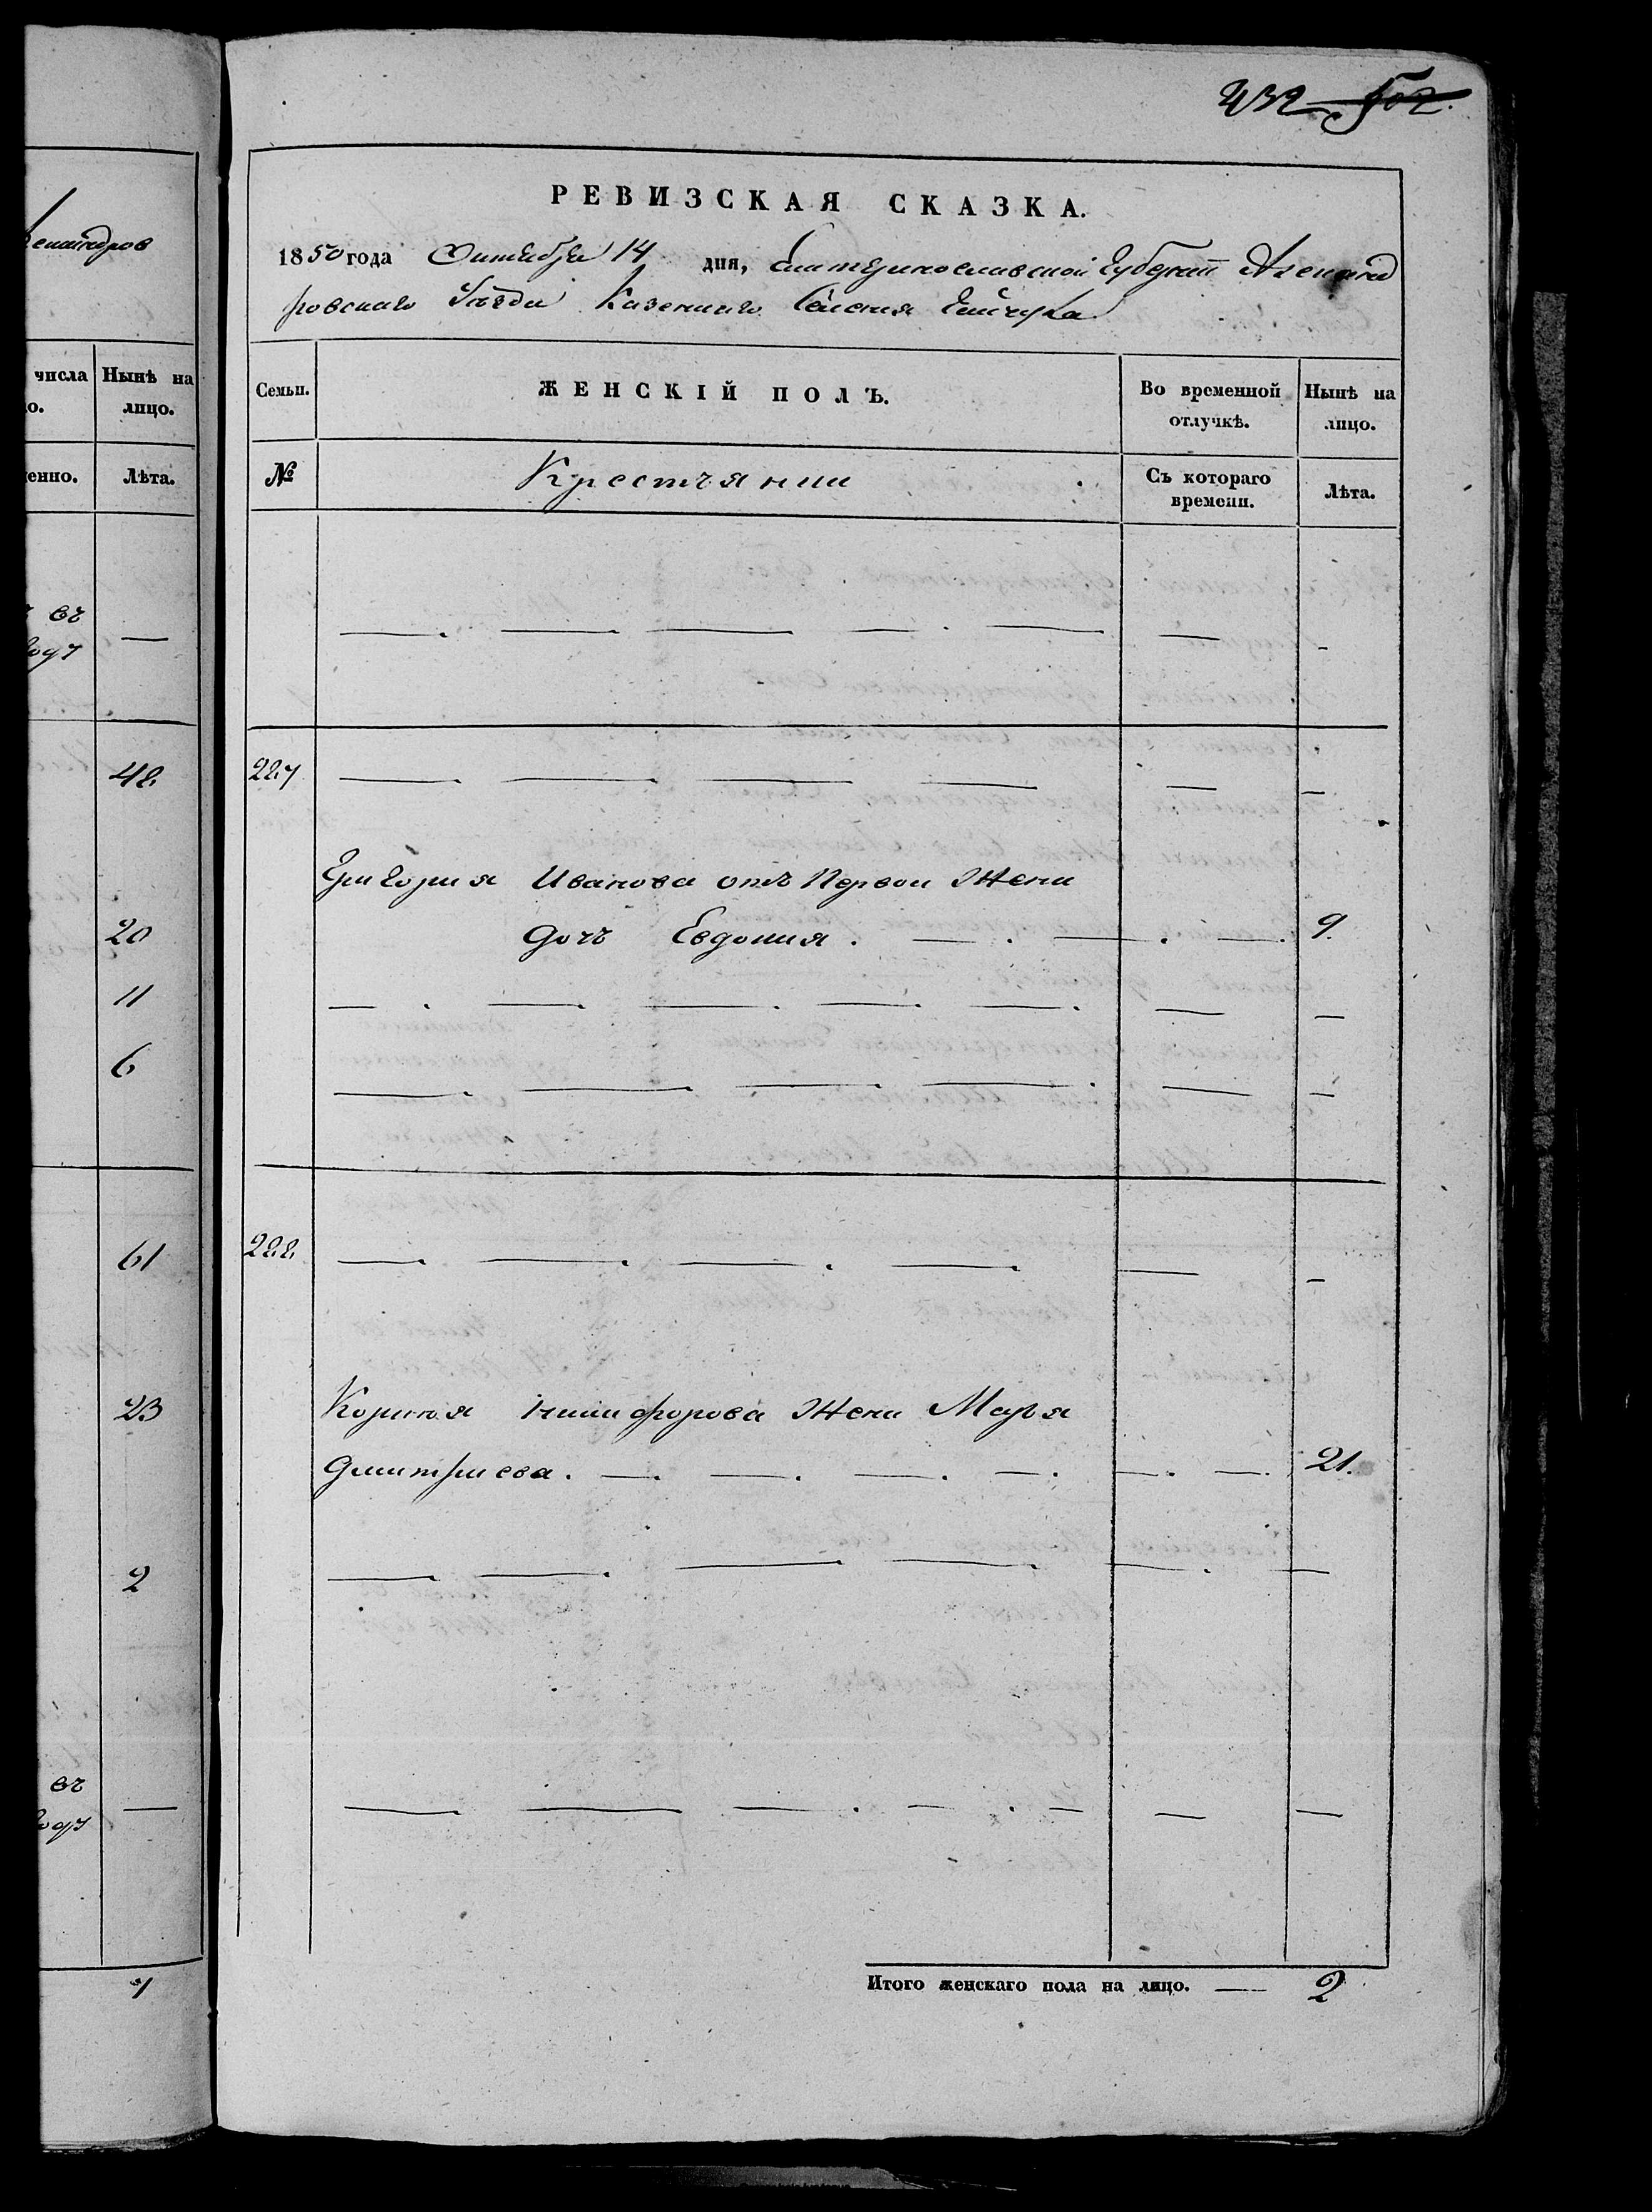 432 502.
РЕВИЗСКАЯ СКАЗКА.
1850 года Октября 14 дня, Екатеринославской Губернии Александ
ровскаго Уезда Казеннаго Селения
Семьи. ЖЕНСКІЙ ПОЛЪ. Во временной отлучкѣ. Нынѣ на лицо.
№ Крестьянки Съ котораго времени. Лѣта.
227
Григория Иванова отъ Первои Жени
дочь Евдокия. 9.
228
Корнея Никифорова Жена Марья
Дмитриева. 21.
Итого женскаго пола на лицо. 2
числа Нынѣ на
о. лицо.
енно. Лѣта.
въ
году
48
20
11
6
61
23
2
въ
году
7